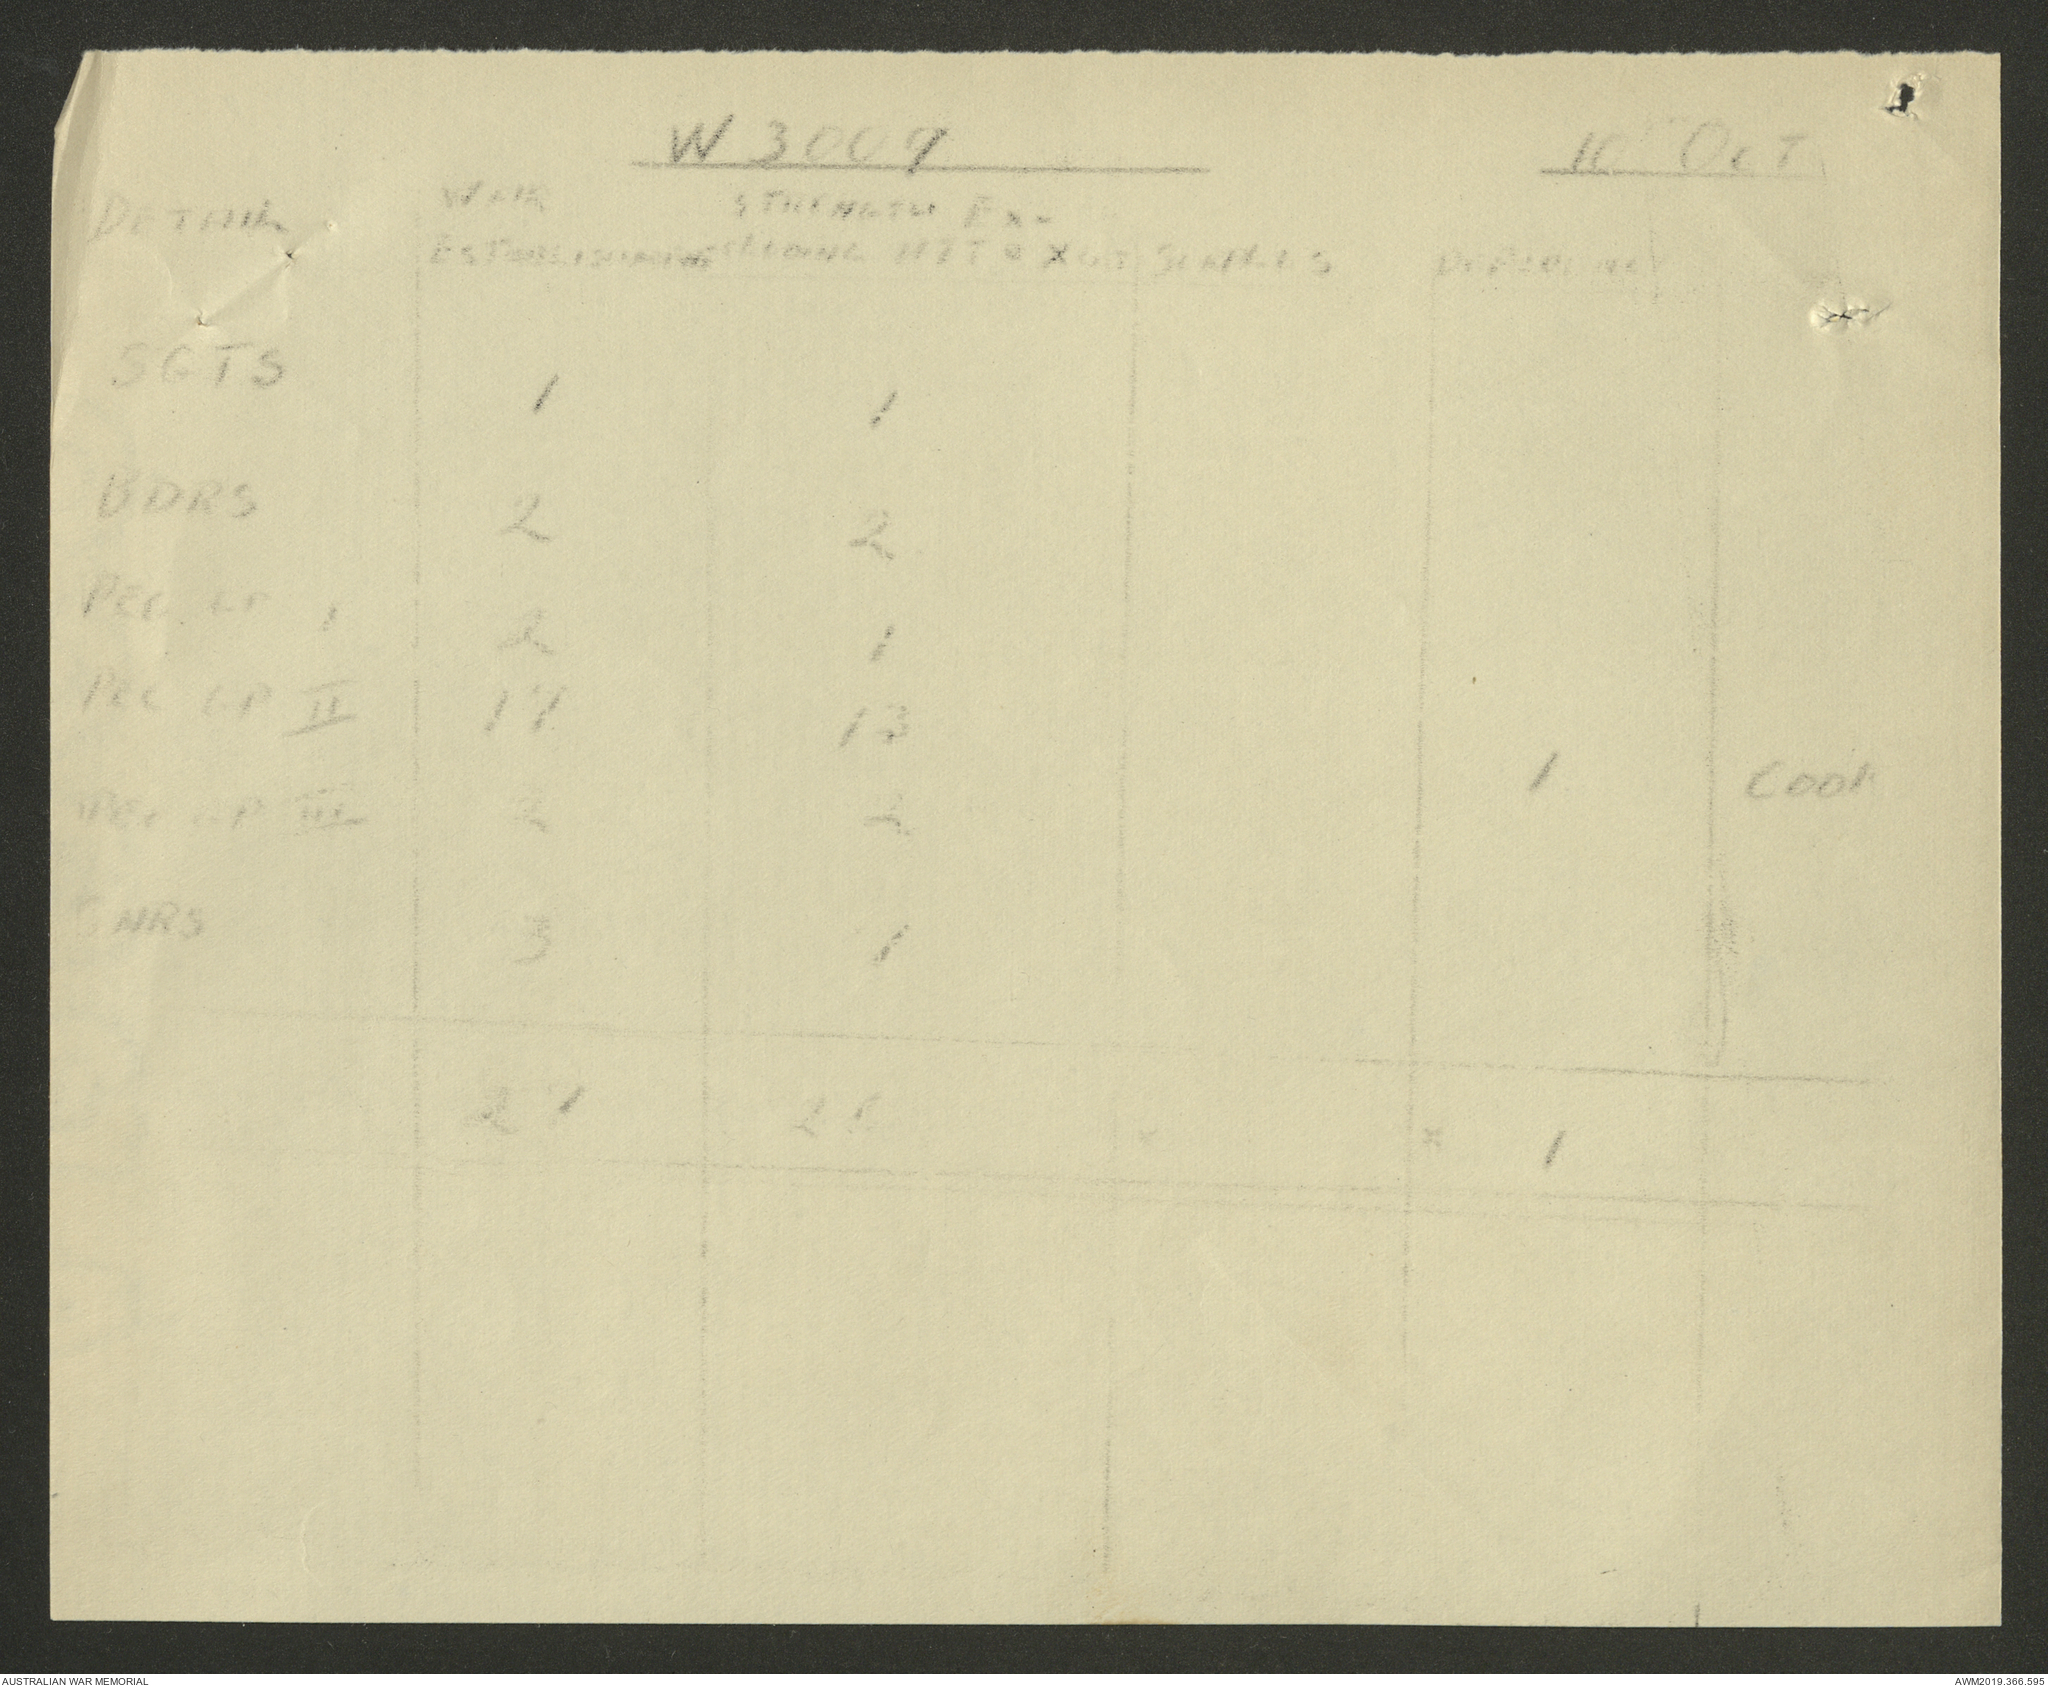 W 3009 10th OCT
DETAIL WAR STRENGTH EX-
ESTABLISHMENT CLUDING SURPLUS DEFICIENCY
SGTS 1 1
BDRS 2 2
PEC GP I 2 1
PEC GP II 17 13 1 COOK
PEC GP III 2 2
GNRS 3 1
27 x x 1
AUSTRALIAN WAR MEMORIAL AWM2019.366.595